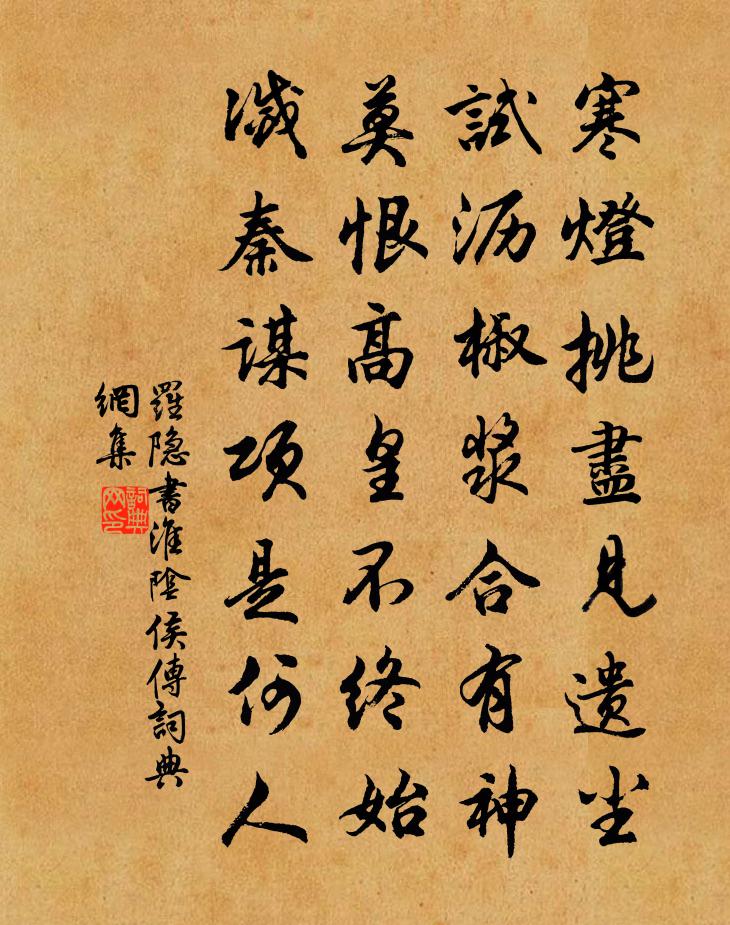 寒燈挑盡見遗尘
試沥椒漿合有神
莫恨高皇不终始
滅秦謀项是何人
羅隐書淮陰侯傳詞典
網集
詞典網印